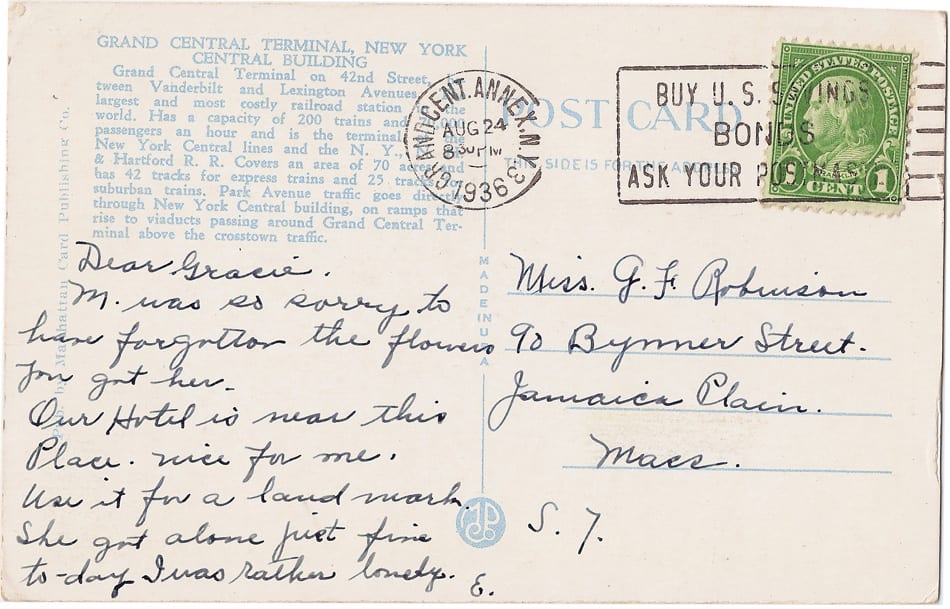 GRAND CENTRAL TERMINAL, NEW YORK
CENTRAL BUILDING
Grand Central Terminal on 42nd Street,
tween Vanderbilt and Lexington Avenues,
largest and most costly railroad station the
world. Has a capacity of 200 trains and
passengers an hour and is the terminal
New York Central lines and the N. Y.,
& Hartford R. R. Covers an area of 70 acres and
has 42 tracks for express trains and 25 tracks for
suburban trains. Park Avenue traffic goes directly
through New York Central building, on ramps that
rise to viaducts passing around Grand Central Ter-
minal above the crosstown traffic.
Manhattan Card Publishing Co.
GR. AND CENT. ANNEX. N.Y.
AUG 24
8 30 PM
1936
3
POST CARD
THIS SIDE IS FOR THE ADDRESS
BUY U.S. SAVINGS
BONDS
ASK YOUR POSTMASTER
UNITED STATES POSTAGE
FRANKLIN
1 CENT 1
Dear Gracie.
M. was so sorry to
have forgotton the flowers
you got her.
Our Hotel is near this
Place. nice for me.
Use it for a land mark.
She got alone just fine
to-day I was rather lonely.
E.
MADE IN U.S.A
Miss. G. F. Robinson
90 Bynner Street.
Jamaica Plain.
Mass.
S. 7.